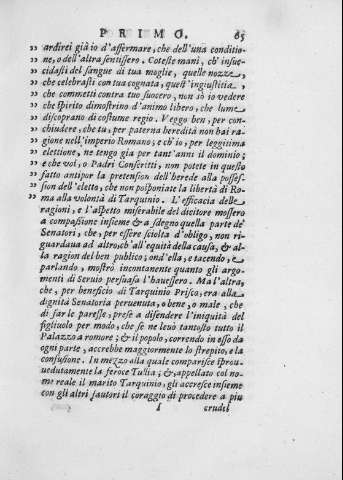 PRIMO. 65
” ardirei già io d'affermare, che dell'una conditio-
” ne, o dell'altra sentissero. Coteste mani, ch' insuc-
” cidasti del sangue di tua moglie, quelle nozze,
” che celebrasti con tua cognata, quest' ingiustitia,
” che commetti contra tuo suocero, non sò io vedere
” che spirito dimostrino d'animo libero, che lume
” discoprano di costume regio. Veggo ben, per con-
” chiudere, che tu, per paterna heredità non hai ra-
” gione nell'imperio Romano; e ch'io, per leggitima
” elettione, ne tengo gia per tant'anni il dominio;
” e che voi, o Padri Conscritti, non potete in questo
” fatto antipor la pretension dell'herede alla posses-
” sion dell'eletto, che non posponiate la libertà di Ro-
” ma alla volontà di Tarquinio. L'efficacia delle
ragioni, e l'aspetto miserabile del dicitore mossero
a compassione insieme & a sdegno quella parte de'
Senatori, che, per essere sciolta d'obligo, non ri-
guardaua ad altro, ch'all'equità della causa, & al-
la ragion del ben publico; ond'ella, e tacendo, e
parlando, mostrò incontanente quanto gli argo-
menti di Seruio persuasa l'hauessero. Ma l'altra,
che, per beneficio di Tarquinio Prisco, era alla
dignità Senatoria peruenuta, o bene, o male, che
di far le paresse, prese a difendere l'iniquità del
figliuolo per modo, che se ne leuò tantosto tutto il
Palazzo a romore; & il popolo, correndo in esso da
ogni parte, accrebbe maggiormente lo strepito, e la
confusione. In mezzo alla quale comparisce sprou-
uedutamente la feroce Tullia; &, appellato col no-
me reale il marito Tarquinio, gli accresce insieme
con gli altri fautori il coraggio di procedere a piu
I crudel